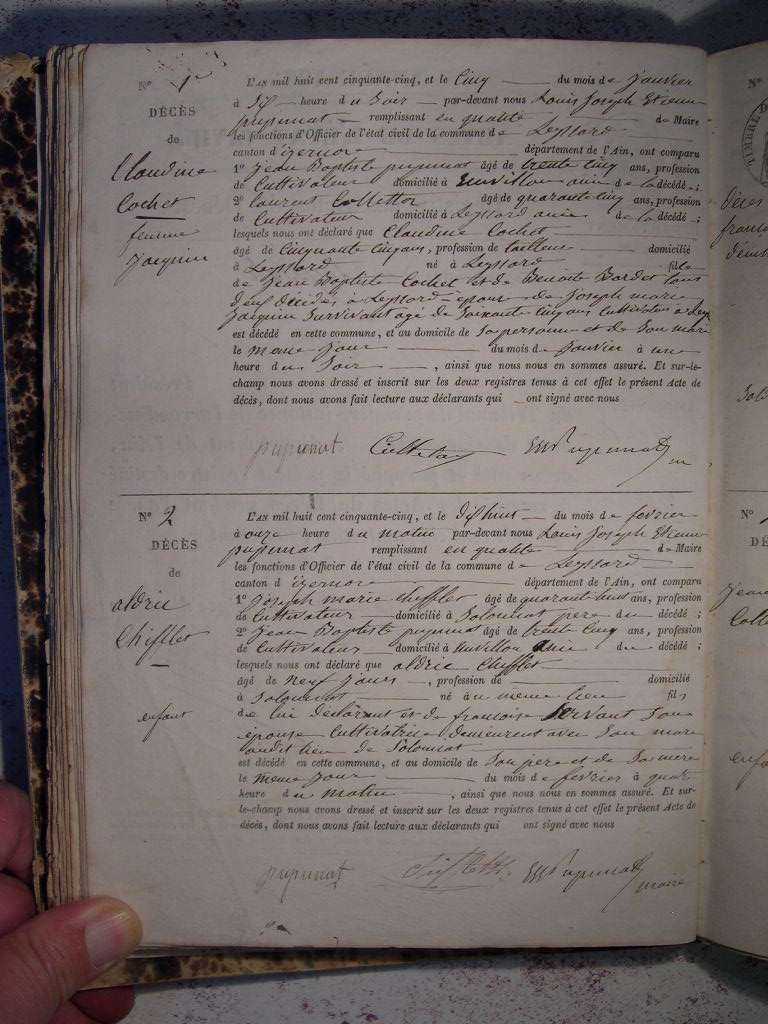 N° 1er
DÉCÈS
de
Claudine
Cochet
femme
Jacquin
L'AN mil huit cent cinquante-cinq, et le Cinq du mois de Janvier
à Six heure du Soir par-devant nous Louis Joseph Etienne
pupunat remplissant en qualité de Maire
les fonctions d'Officier de l'état civil de la commune de Leyssard
canton d'izernore département de l'Ain, ont comparu
1° Jean Baptiste pupunat âgé de trente Cinq ans, profession
de Cultivateur domicilié à amie de la décédée ;
2° Laurent Collettar âgé de quarante Cinq ans, profession
de Cultivateur domicilié à Leyssard amie de la décédé ;
lesquels nous ont déclaré que Claudine Cochet
âgé de Cinquante Cinq ans, profession de tailleuse domicilié
à Leyssard né à Leyssard fille
de Jean Baptiste Cochet et de Benoite Bordet tous
deux décédés à Leyssard épouse de Joseph marie
Jacquin Survivant agé de Soixante Cinq ans Cultivateur à Leys
est décédé en cette commune, et au domicile de Sa personne et de Son mari
le meme Jour du mois de Janvier à une
heure du Soir , ainsi que nous nous en sommes assuré. Et sur-le-
champ nous avons dressé et inscrit sur les deux registres tenus à cet effet le présent Acte de
décès, dont nous avons fait lecture aux déclarants qui ont signé avec nous
pupunat Pupunat m
N° 2
DÉCÈS
de
aldrie
Chifflet
enfant
L'AN mil huit cent cinquante-cinq, et le Dix huit du mois de fevrier
à onze heure du matin par-devant nous Louis Joseph Etienne
pupunat remplissant en qualité de Maire
les fonctions d'Officier de l'état civil de la commune de Leyssard
canton d'izernore département de l'Ain, ont comparu
1° Joseph marie Chifflet âgé de quarante huit ans, profession
de Cultivateur domicilié à Solomiat pere du décédé ;
2° Jean Baptiste pupunat âgé de trente Cinq ans, profession
de Cultivateur domicilié à amie du décédé ;
lesquels nous ont déclaré que aldrie Chifflet
âgé de neuf Jours , profession de domicilié
à Solomiat né à u meme lieu fils
de lui déclarant et de francoise Servant Son
épouse Cultivatrice demeurent avec Son mari
audit lieu de Solomiat
est décédé en cette commune, et au domicile de Son pere et de Sa mere
le meme Jour du mois de fevrier à quatre
heure du matin , ainsi que nous nous en sommes assuré. Et sur-
le-champ nous avons dressé et inscrit sur les deux registres tenus à cet effet le présent Acte de
décès, dont nous avons fait lecture aux déclarants qui ont signé avec nous
pupunat Pupunat maire